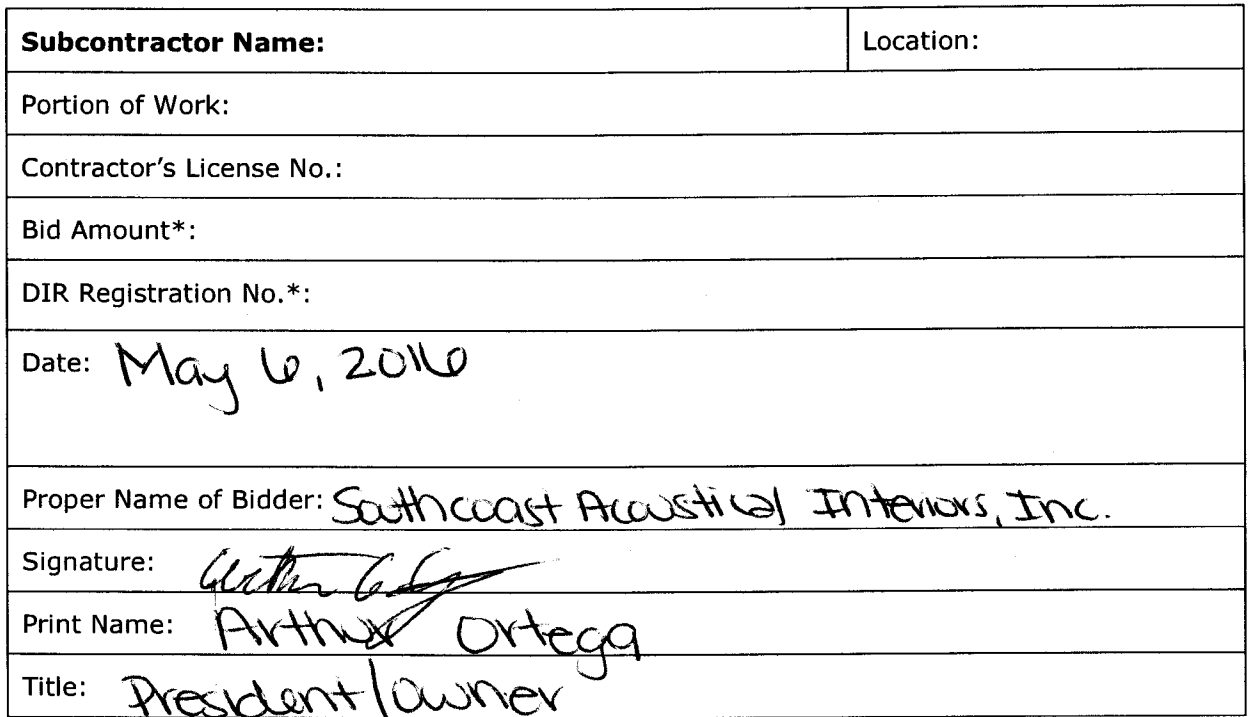 Subcontractor Name: Location:
Portion of Work:
Contractor's License No.:
Bid Amount*:
DIR Registration No.*:
Date: May 6, 2016
Proper Name of Bidder: Southcoast Acoustical Interiors, Inc.
Signature:
Print Name: Arthur Ortega
Title: President/owner